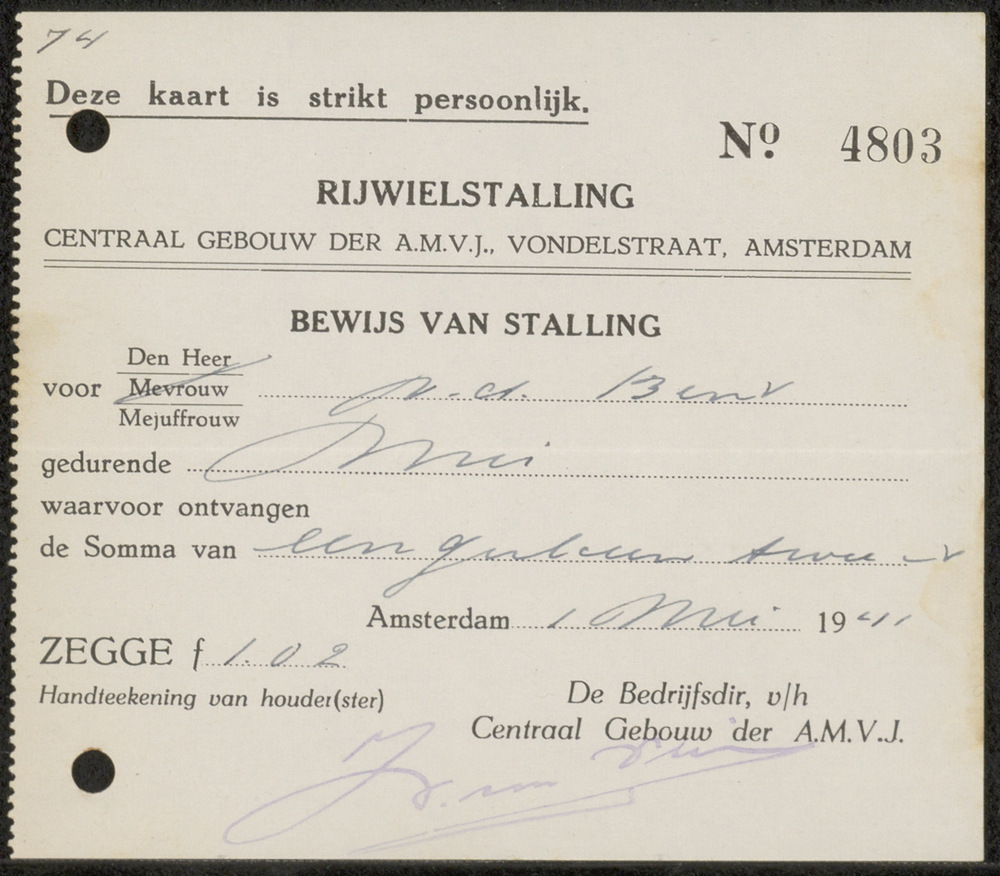 74
Deze kaart is strikt persoonlijk.
Nº 4803
RIJWIELSTALLING
CENTRAAL GEBOUW DER A.M.V.J., VONDELSTRAAT, AMSTERDAM
BEWIJS VAN STALLING
Den Heer
voor Mevrouw v.d. Bent
Mejuffrouw
gedurende Mei
waarvoor ontvangen
de Somma van een gulden twee ct
Amsterdam 1 Mei 1941
ZEGGE f 1.02
Handteekening van houder(ster)
De Bedrijfsdir, v/h
Centraal Gebouw der A.M.V.J.